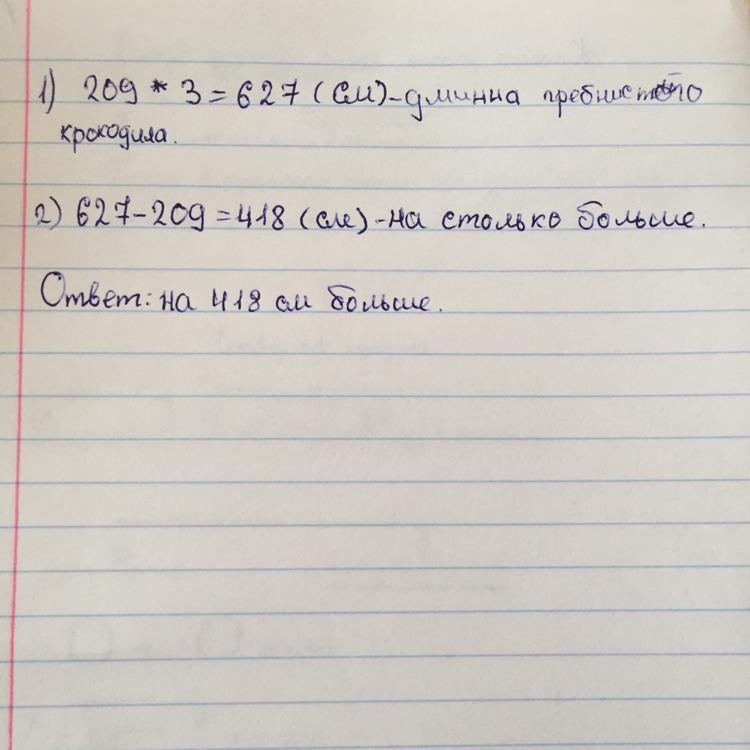 1) 209 * 3 = 627 (см) - длинна гребнистого
крокодила.
2) 627 - 209 = 418 (см) - на столько больше.
Ответ: на 418 см больше.